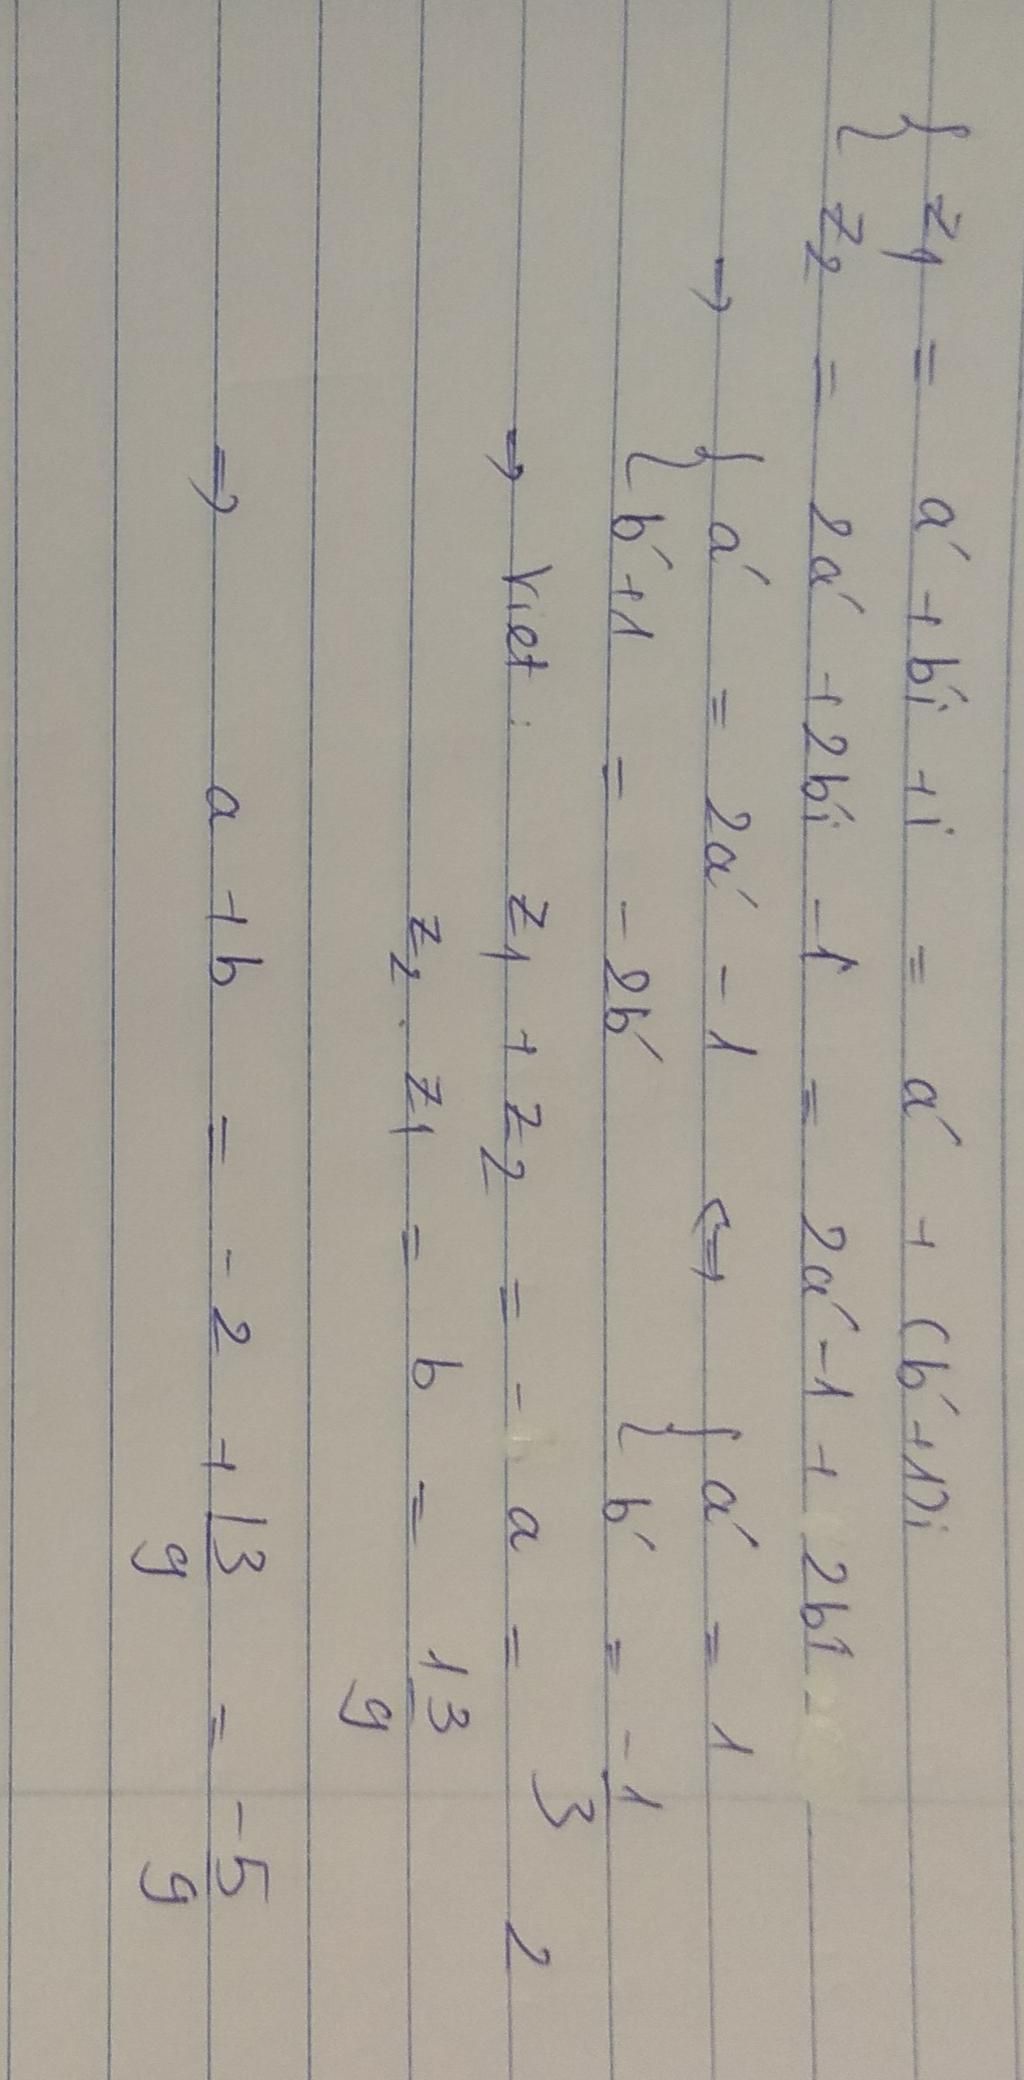 { z₁ = a' + b'i + i = a' + (b'+1)i
{ z₂ = 2a' + 2b'i - 1 = 2a' - 1 + 2b'i
→ { a' = 2a' - 1 ⇔ { a' = 1
{ b'+1 = -2b' { b' = -1/3
→ Viet: z₁ + z₂ = - a = 2
z₂ . z₁ = b = 13/9
⇒ a + b = -2 + 13/9 = -5/9